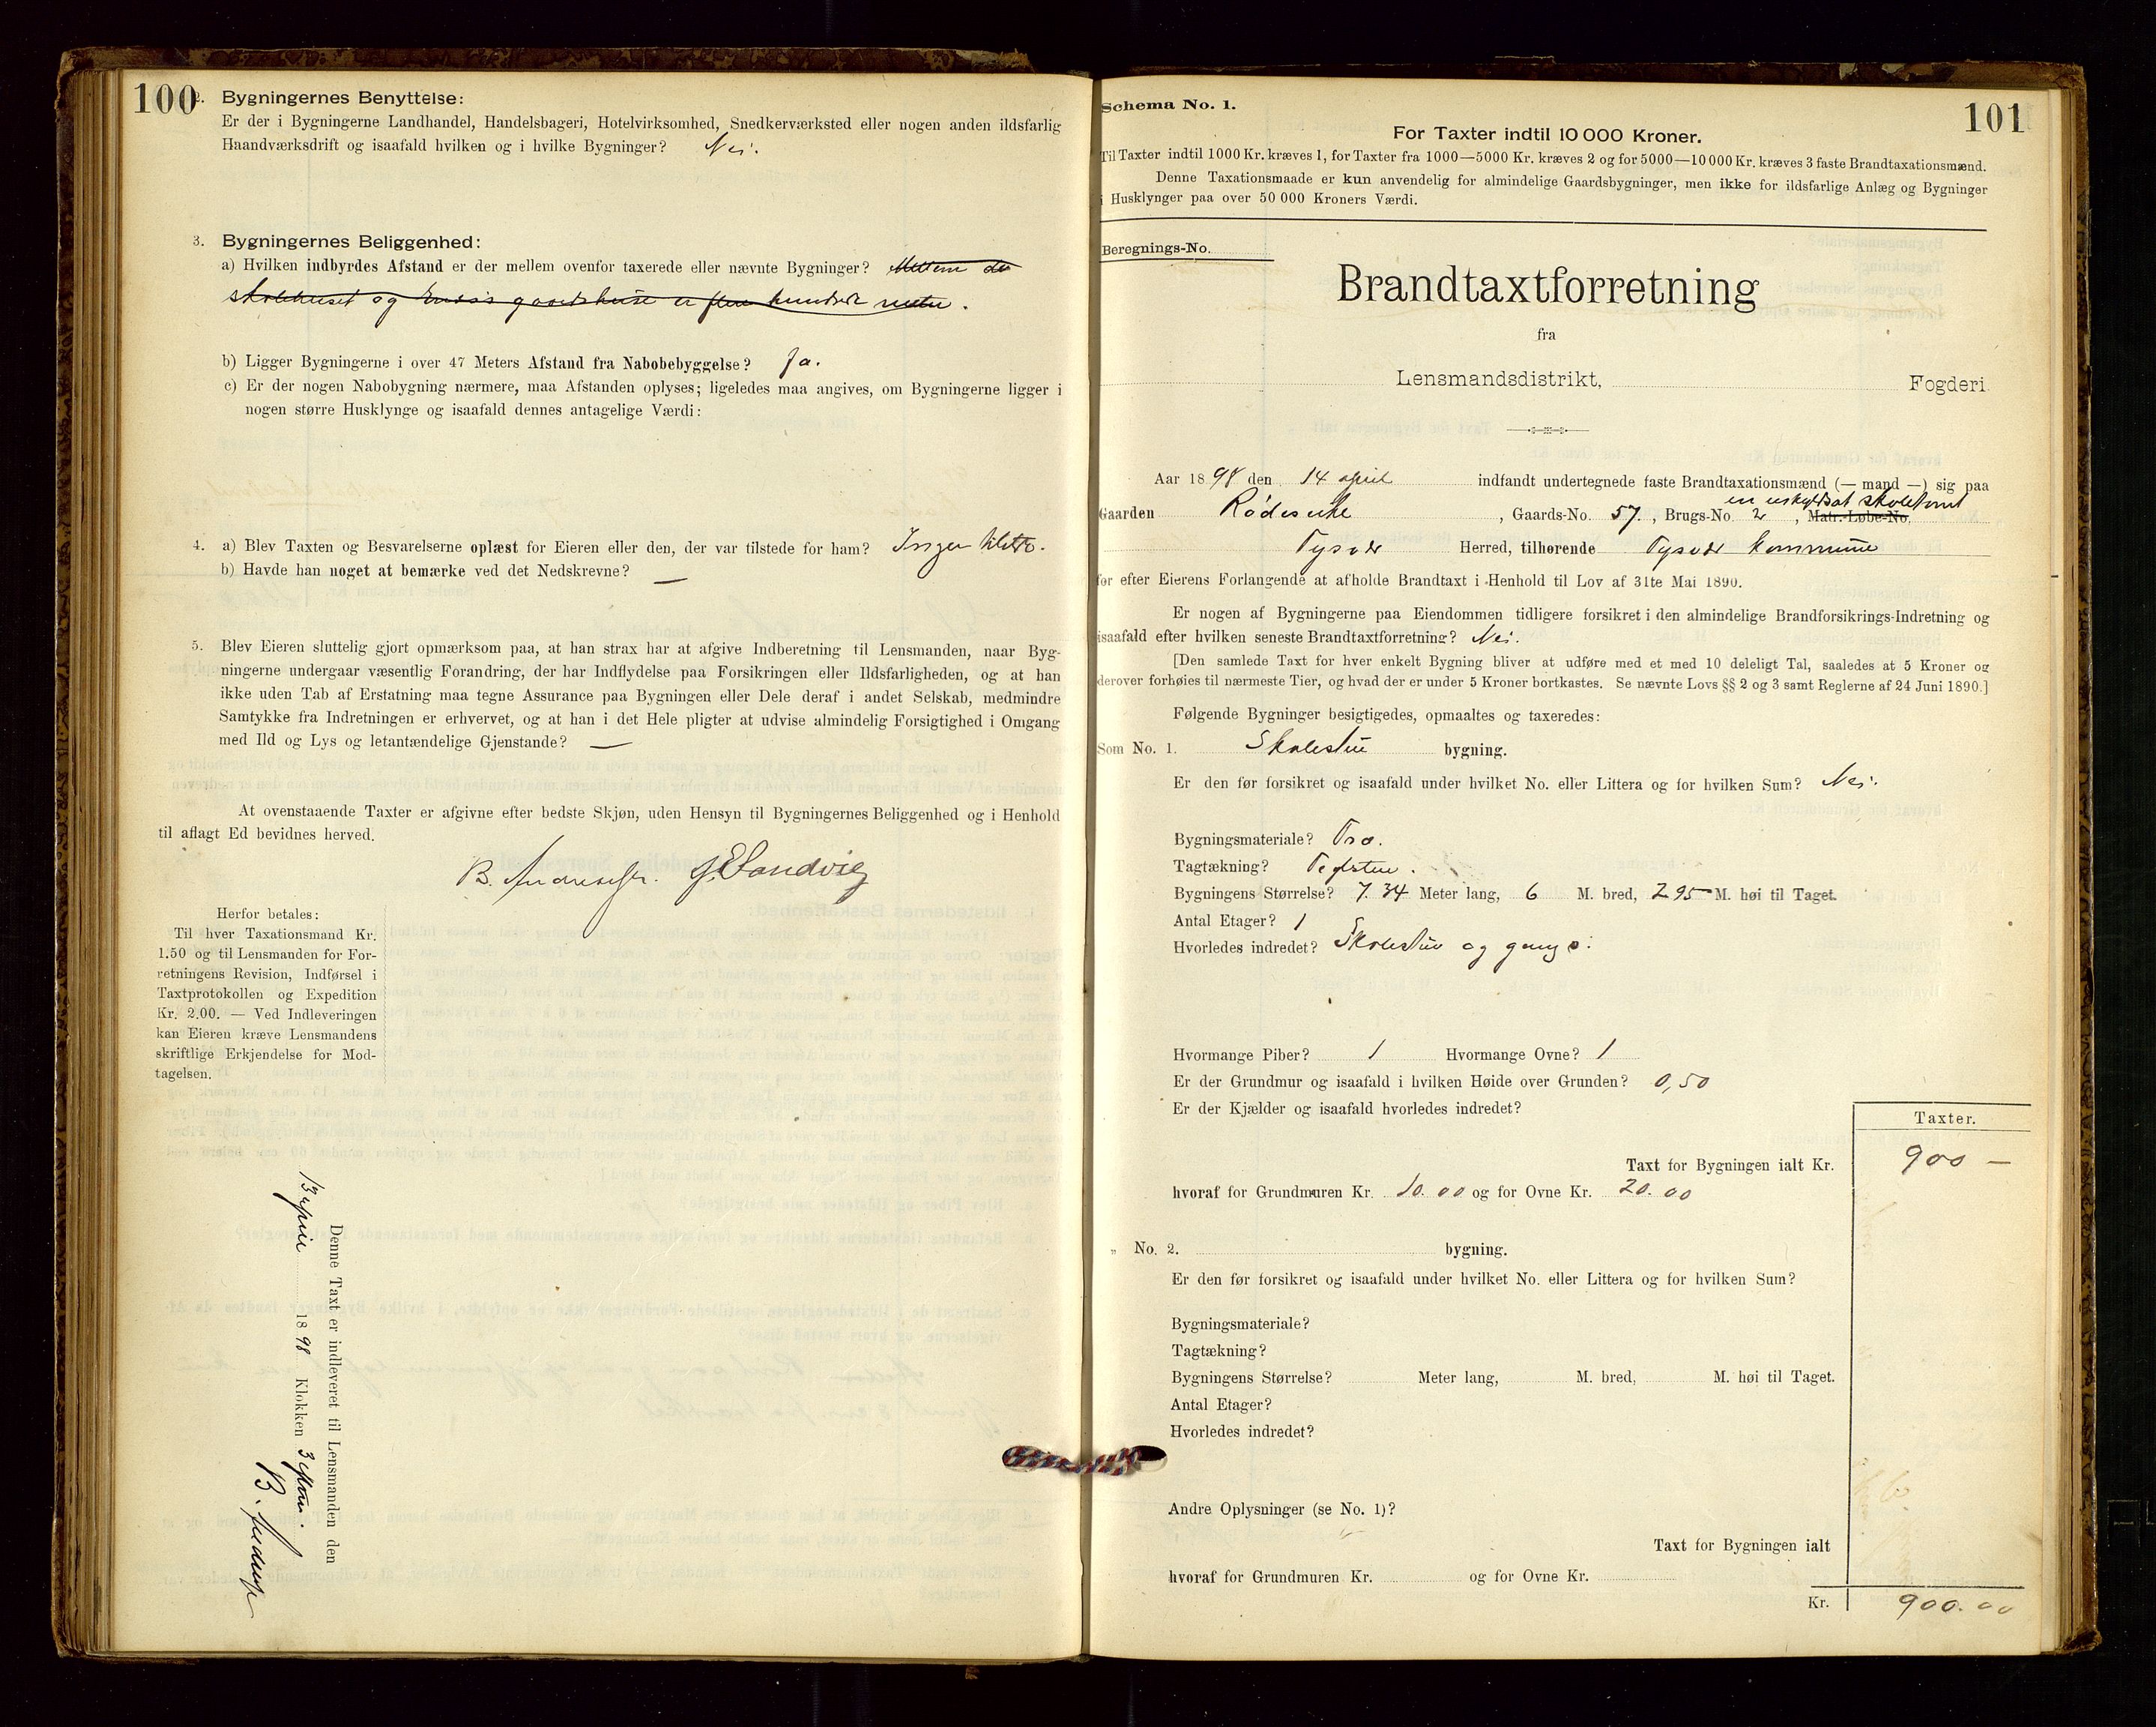 100
2. Bygningernes Benyttelse:
Er der i Bygningerne Landhandel, Handelsbageri, Hotelvirksomhed, Snedkerværksted eller nogen anden ildsfarlig
Haandværksdrift og isaafald hvilken og i hvilke Bygninger? Nei.
3. Bygningernes Beliggenhed:
a) Hvilken indbyrdes Afstand er der mellem ovenfor taxerede eller nævnte Bygninger? Mellem de
skolehuset og gaardshuse er flere hundrede metre.
b) Ligger Bygningerne i over 47 Meters Afstand fra Nabobebyggelse? Ja.
c) Er der nogen Nabobygning nærmere, maa Afstanden oplyses; ligeledes maa angives, om Bygningerne ligger i
nogen større Husklynge og isaafald dennes antagelige Værdi:
4. a) Blev Taxten og Besvarelserne oplæst for Eieren eller den, der var tilstede for ham? Ingen tilstede.
b) Havde han noget at bemærke ved det Nedskrevne? —
5. Blev Eieren sluttelig gjort opmærksom paa, at han strax har at afgive Indberetning til Lensmanden, naar Byg-
ningerne undergaar væsentlig Forandring, der har Indflydelse paa Forsikringen eller Ildsfarligheden, og at han
ikke uden Tab af Erstatning maa tegne Assurance paa Bygningen eller Dele deraf i andet Selskab, medmindre
Samtykke fra Indretningen er erhvervet, og at han i det Hele pligter at udvise almindelig Forsigtighed i Omgang
med Ild og Lys og letantændelige Gjenstande? —
At ovenstaaende Taxter er afgivne efter bedste Skjøn, uden Hensyn til Bygningernes Beliggenhed og i Henhold
til aflagt Ed bevidnes herved.
B. Sandvig
Herfor betales:
Til hver Taxationsmand Kr.
1.50 og til Lensmanden for For-
retningens Revision, Indførsel i
Taxtprotokollen og Expedition
Kr. 2.00. — Ved Indleveringen
kan Eieren kræve Lensmandens
skriftlige Erkjendelse for Mod-
tagelsen.
Denne Taxt er indleveret til Lensmanden den
1898 Klokken 3
B.
101
Schema No. 1.
For Taxter indtil 10 000 Kroner.
Til Taxter indtil 1000 Kr. kræves 1, for Taxter fra 1000—5000 Kr. kræves 2 og for 5000—10 000 Kr. kræves 3 faste Brandtaxationsmænd.
Denne Taxationsmaade er kun anvendelig for almindelige Gaardsbygninger, men ikke for ildsfarlige Anlæg og Bygninger
i Husklynger paa over 50 000 Kroners Værdi.
Beregnings-No.
Brandtaxtforretning
fra
Lensmandsdistrikt, Fogderi
Aar 1898 den 14 april indfandt undertegnede faste Brandtaxationsmænd (— mand —) sig paa
en uskyldsat skoletomt
Gaarden , Gaards-No. 57., Brugs-No. 2, Matr.-Løbe-No.
Tysvær Herred, tilhørende Tysvær kommune
for efter Eierens Forlangende at afholde Brandtaxt i Henhold til Lov af 31te Mai 1890.
Er nogen af Bygningerne paa Eiendommen tidligere forsikret i den almindelige Brandforsikrings-Indretning og
isaafald efter hvilken seneste Brandtaxtforretning? Nei.
[Den samlede Taxt for hver enkelt Bygning bliver at udføre med et med 10 deleligt Tal, saaledes at 5 Kroner og
derover forhøies til nærmeste Tier, og hvad der er under 5 Kroner bortkastes. Se nævnte Lovs §§ 2 og 3 samt Reglerne af 24 Juni 1890.]
Følgende Bygninger besigtigedes, opmaaltes og taxeredes:
Som No. 1. Skolestue bygning.
Er den før forsikret og isaafald under hvilket No. eller Littera og for hvilken Sum? Nei.
Bygningsmateriale? Træ.
Tagtækning? Teglsten.
Bygningens Størrelse? 7.34 Meter lang, 6 M. bred, 2 95 M. høi til Taget.
Antal Etager? 1
Hvorledes indredet? Skolestue og gang.
Hvormange Piber? 1 Hvormange Ovne? 1
Er der Grundmur og isaafald i hvilken Høide over Grunden? 0,50
Er der Kjælder og isaafald hvorledes indredet?
Taxter.
Taxt for Bygningen ialt Kr. 900 —
hvoraf for Grundmuren Kr. 10.00 og for Ovne Kr. 20.00
„ No. 2. bygning.
Er den før forsikret og isaafald under hvilket No. eller Littera og for hvilken Sum?
Bygningsmateriale?
Tagtækning?
Bygningens Størrelse? Meter lang, M. bred, M. høi til Taget.
Antal Etager?
Hvorledes indredet?
Andre Oplysninger (se No. 1)?
Taxt for Bygningen ialt
hvoraf for Grundmuren Kr. og for Ovne Kr.
Kr. 900.00